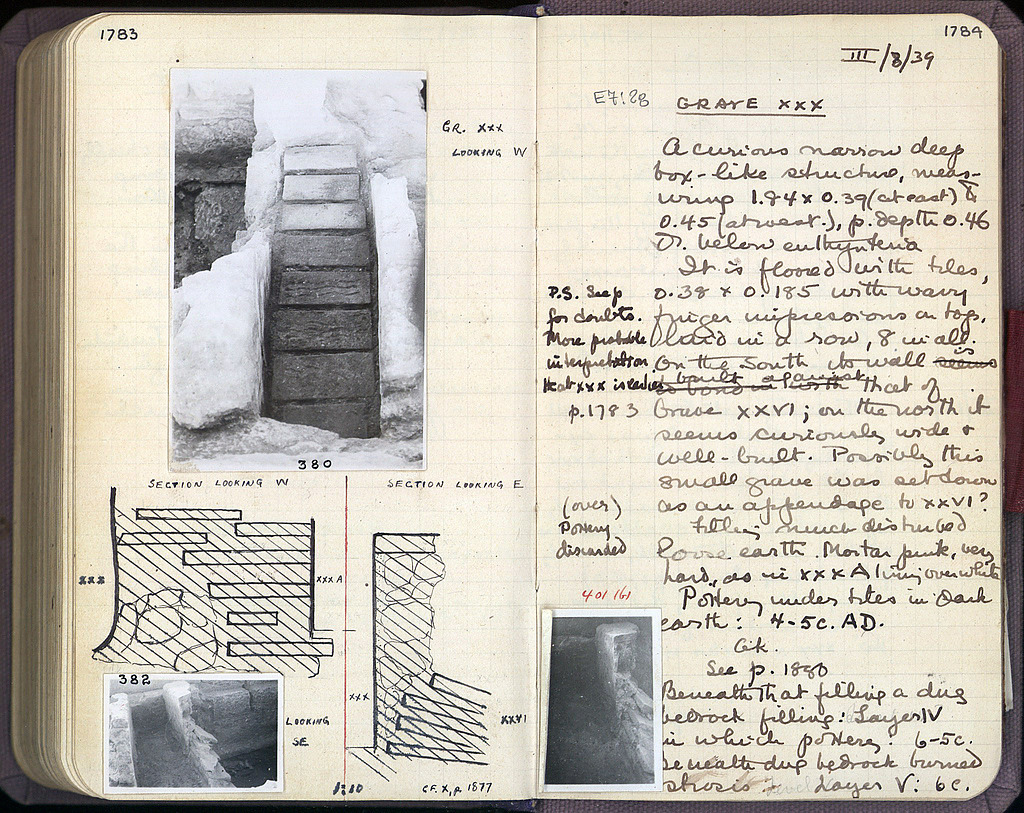 1783
GR. XXX
LOOKING W
380
SECTION LOOKING W
SECTION LOOKING E
XXX
XXX A
XXX
XXVI
382
LOOKING
SE
1:10
CF. X, p. 1877
1784
III/8/39
E7:28
GRAVE XXX
A curious narrow deep
box-like structure, meas-
uring 1.84 x 0.39 (at east) &
0.45 (at west.), p. depth 0.46
below euthynteria
It is floored with tiles,
0.38 x 0.185 with wavy
finger impressions on top,
laid in a row, 8 in all.
On the South its wall is
built against that of
Grave XXVI; on the north it
seems curiously wide &
well-built. Possibly this
small grave was set down
as an appendage to XXVI?
Filling much disturbed
loose earth. Mortar pink, very
hard, as in XXX A lining over white
Pottery under tiles in dark
earth: 4-5c. AD.
Gk.
See p. 1880
Beneath that filling a dug
bedrock filling: Layer IV
in which pottery: 6-5c.
Beneath dug bedrock burned
strosis Layer V: 6c.
P.S. See p
for doubts.
More probable
interpretation
that XXX is earlier
p. 1783
(over)
Pottery
discarded
401 (6)